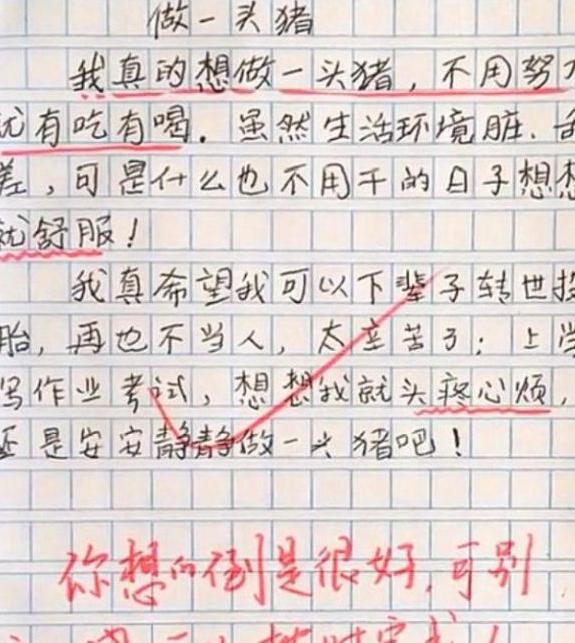 做一头猪
我真的想做一头猪，不用努力
就有吃有喝。虽然生活环境脏、乱
差，可是什么也不用干的日子想想
就舒服！
我真希望我可以下辈子转世投
胎，再也不当人，太辛苦了：上学
写作业考试，想想我就头疼心烦，
还是安安静静做一头猪吧！
你想的倒是很好，可别